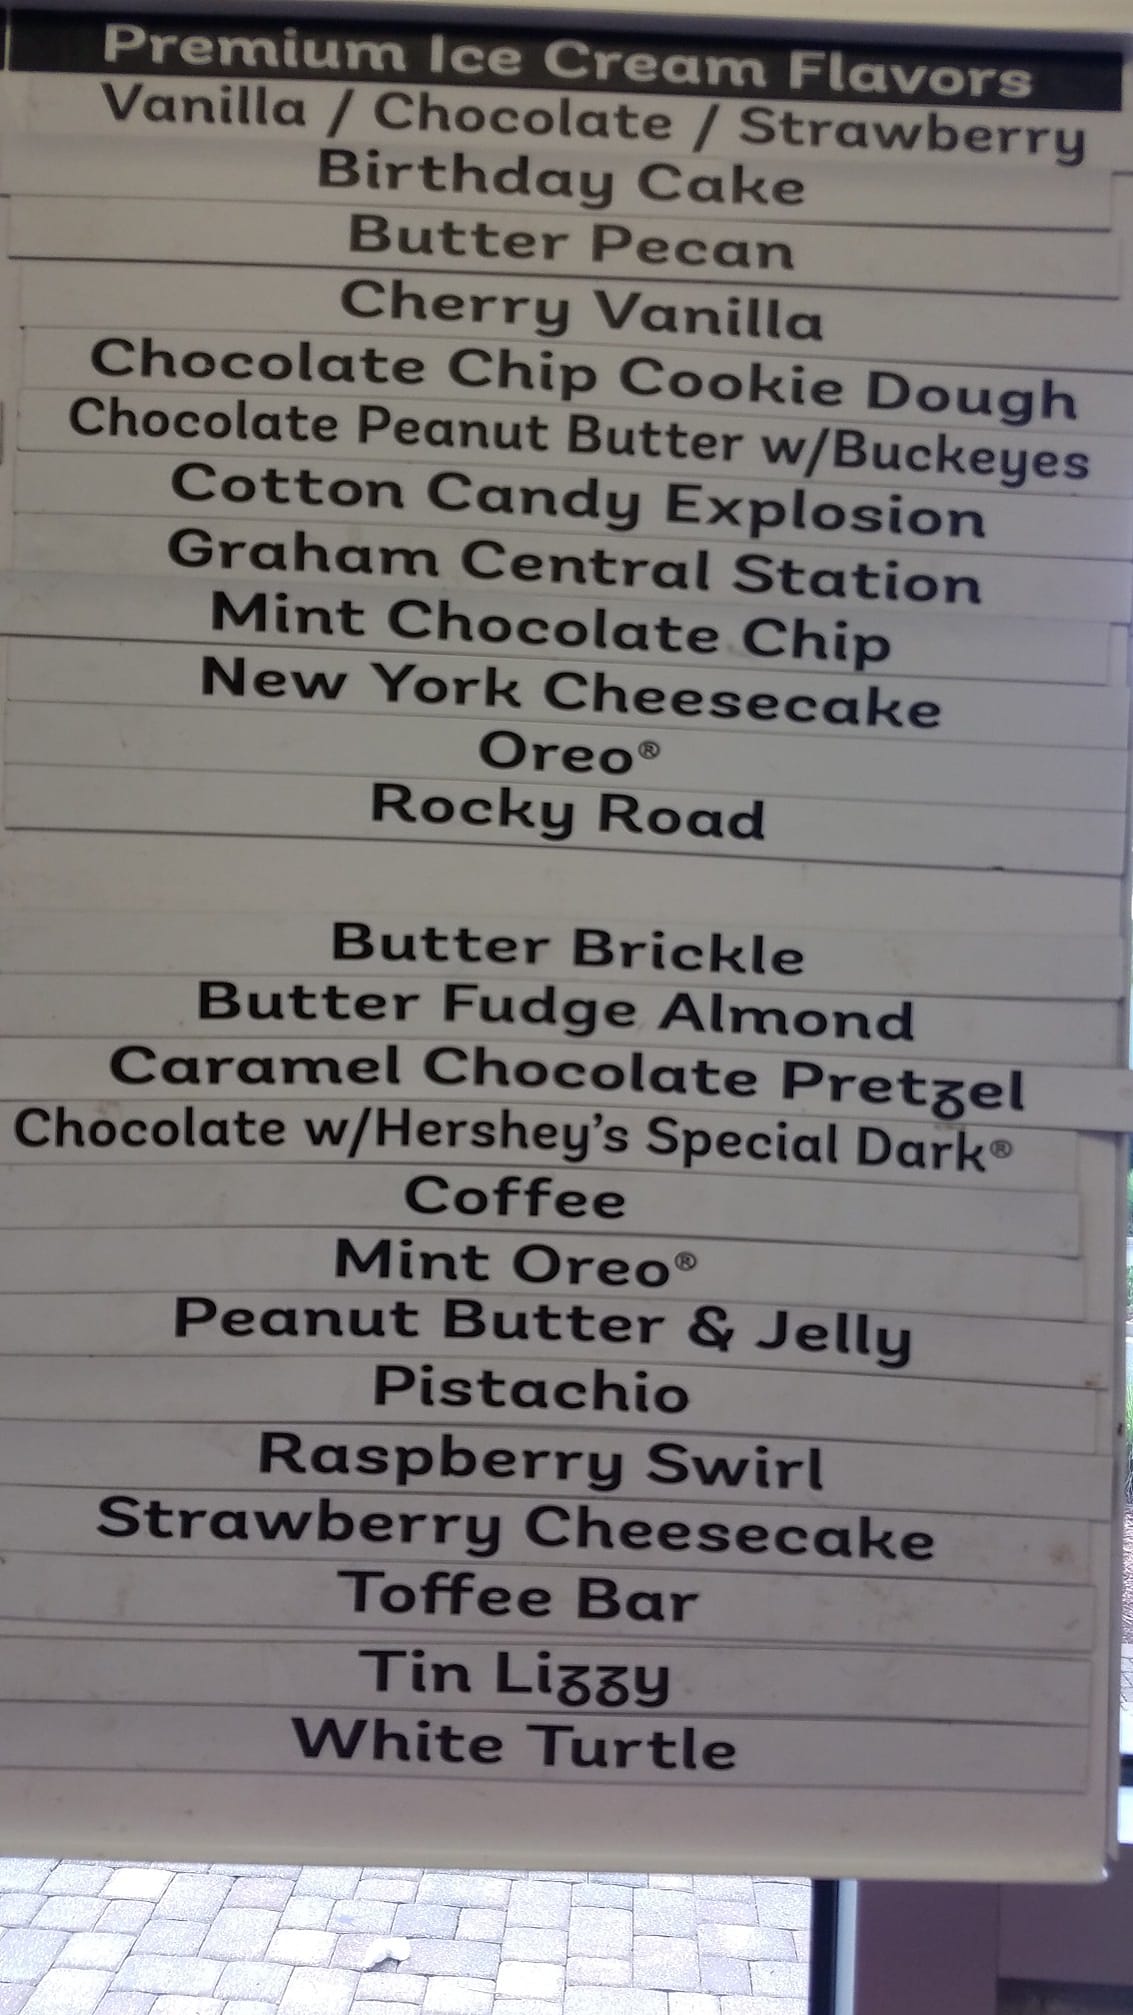 Premium Ice Cream Flavors
Vanilla / Chocolate / Strawberry
Birthday Cake
Butter Pecan
Cherry Vanilla
Chocolate Chip Cookie Dough
Chocolate Peanut Butter w/Buckeyes
Cotton Candy Explosion
Graham Central Station
Mint Chocolate Chip
New York Cheesecake
Oreo®
Rocky Road
Butter Brickle
Butter Fudge Almond
Caramel Chocolate Pretzel
Chocolate w/Hershey's Special Dark®
Coffee
Mint Oreo®
Peanut Butter & Jelly
Pistachio
Raspberry Swirl
Strawberry Cheesecake
Toffee Bar
Tin Lizzy
White Turtle